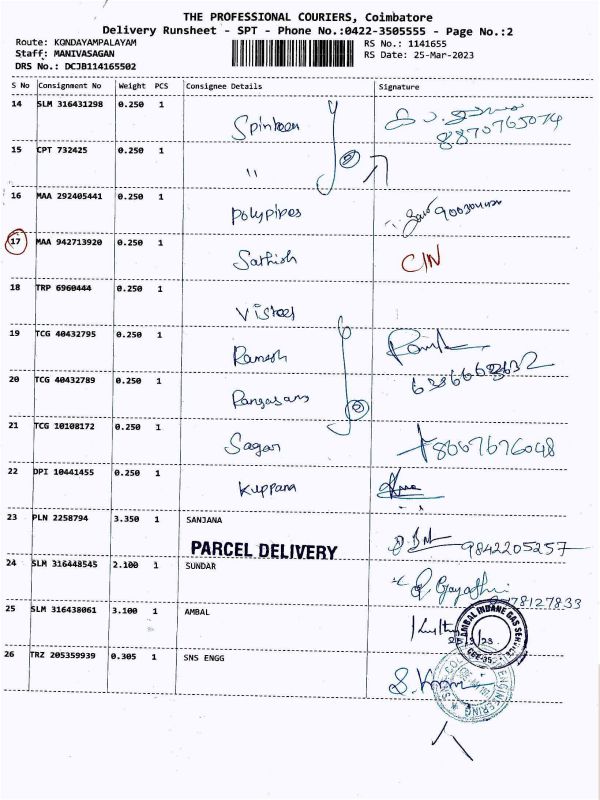 THE PROFESSIONAL COURIERS, Coimbatore
Delivery Runsheet - SPT - Phone No.:0422-3505555 - Page No.:2
Route: KONDAYAMPALAYAM RS No.: 1141655
Staff: MANIVASAGAN RS Date: 25-Mar-2023
DRS No.: DCJB114165502
S No Consignment No Weight PCS Consignee Details Signature
14 SLM 316431298 0.250 1
8870765074
15 CPT 732425 0.250 1 "
16 MAA 292405441 0.250 1 Polypipes
17 MAA 942713920 0.250 1 Sathish C/N
18 TRP 6960444 0.250 1
19 TCG 40432795 0.250 1 Ramesh
20 TCG 40432789 0.250 1
21 TCG 10108172 0.250 1 Sagar
22 DPI 10441455 0.250 1 Kuppana
23 PLN 2258794 3.350 1 SANJANA
PARCEL DELIVERY 9842205257
24 SLM 316448545 2.100 1 SUNDAR
25 SLM 316438061 3.100 1 AMBAL
AMBAL INDANE GAS SERVICE
26 TRZ 205359939 0.305 1 SNS ENGG